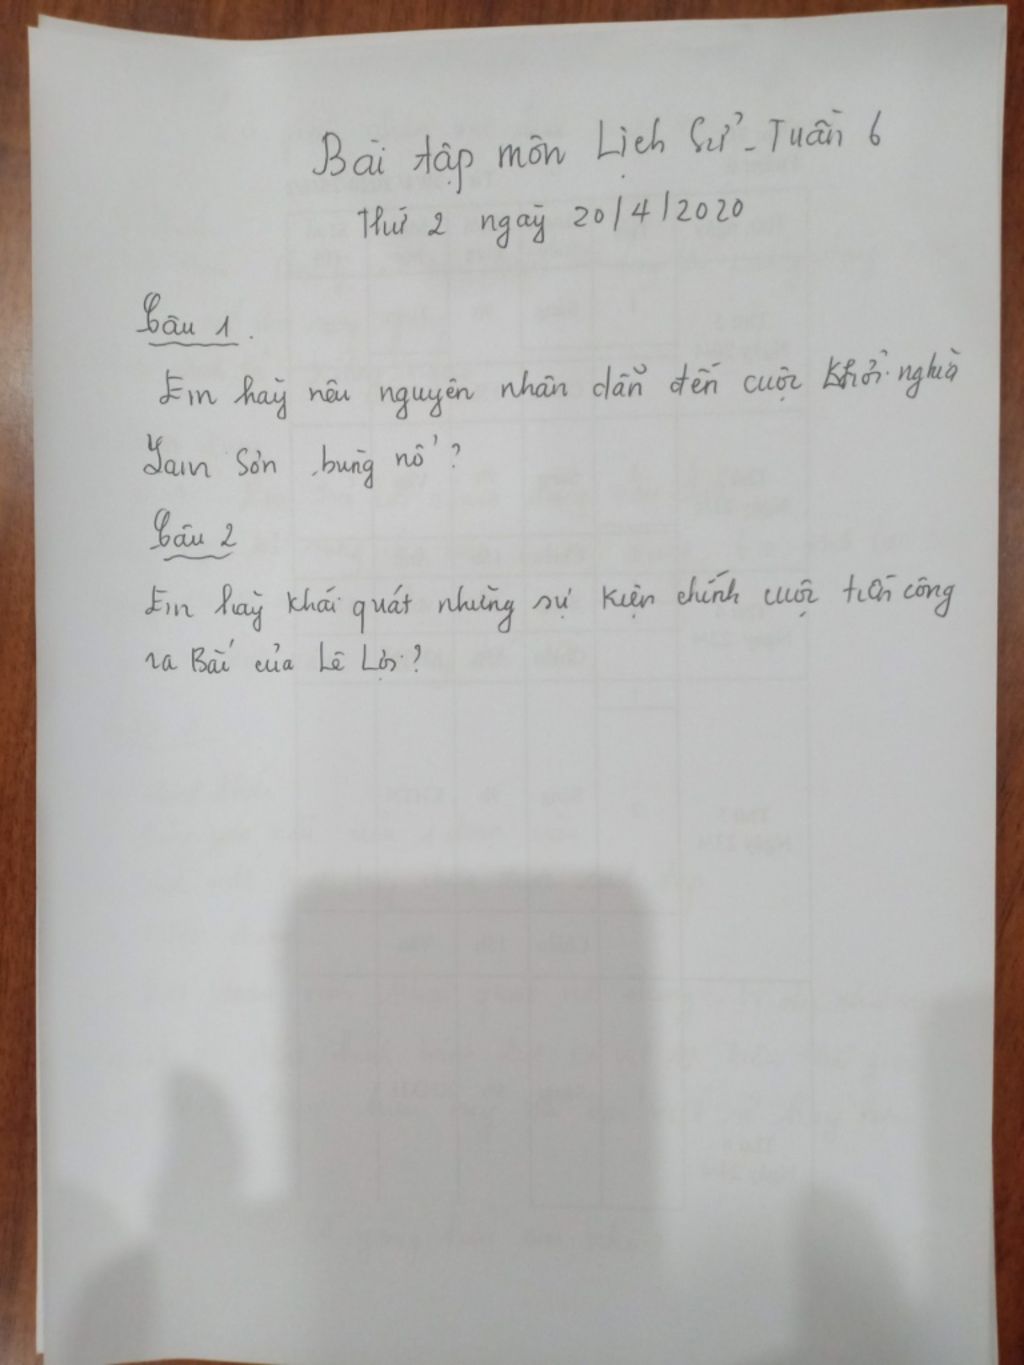 Bài tập môn Lịch Sử - Tuần 6
Thứ 2 ngày 20/4/2020
Câu 1.
Em hãy nêu nguyên nhân dẫn đến cuộc khởi nghĩa
Lam Sơn bùng nổ?
Câu 2
Em hãy khái quát những sự kiện chính cuộc tiến công
ra Bắc của Lê Lợi?